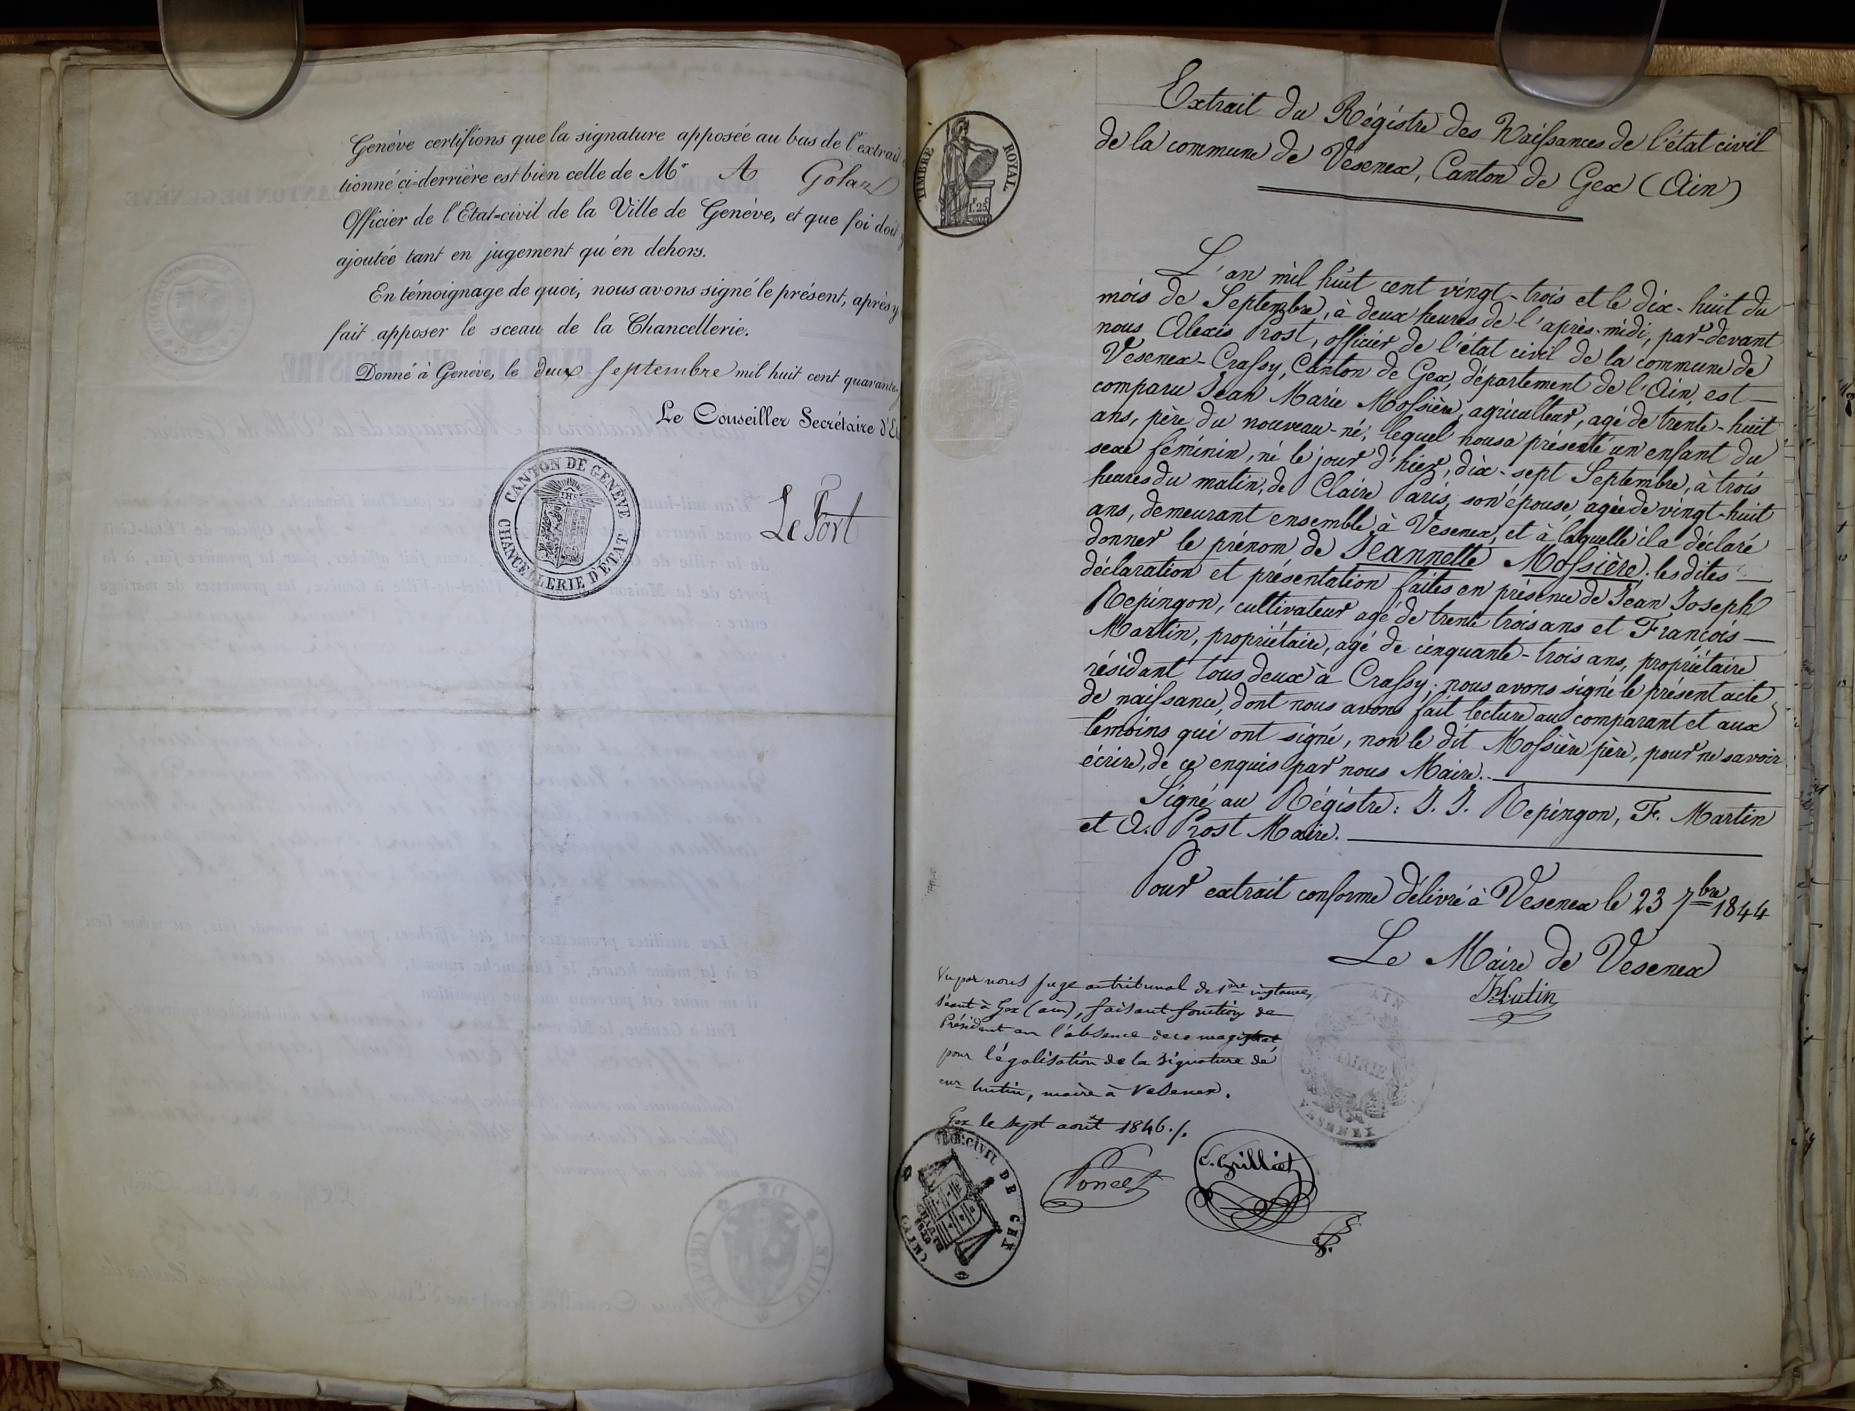 Genève certifions que la signature apposée au bas de l'extrait
tionné ci-derrière est bien celle de Mr A Golaz
Officier de l'Etat-civil de la Ville de Genève, et que foi doit
ajoutée tant en jugement qu'en dehors.
En témoignage de quoi, nous avons signé le présent, après y
fait apposer le sceau de la Chancellerie.
Donné à Genève, le deux septembre mil huit cent quarante
Le Conseiller Secrétaire d'E
CANTON DE GENÈVE
CHANCELLERIE D'ÉTAT
Le Fort
TIMBRE ROYAL
1F.25
Extrait du Régistre des Naissances de l'état civil
de la commune de Vesenex, Canton de Gex (Ain)
L'an mil huit cent vingt-trois et le dix-huit du
mois de Septembre, à deux heures de l'après-midi, par-devant
nous Alexis Prost, officier de l'état civil de la commune de
Vesenex-Crassy, Canton de Gex, département de l'Ain, est
comparu Jean Marie Mossière, agriculteur, agé de trente-huit
ans, père du nouveau-né, lequel nous a présenté un enfant du
sexe féminin, né le jour d'hier, dix-sept Septembre, à trois
heures du matin, de Claire Paris, son épouse, agée de vingt-huit
ans, demeurant ensemble à Vesenex, et à laquelle il a déclaré
donner le prénom de Jeannette Mossière; les dites
déclaration et présentation faites en présence de Jean Joseph
Repingon, cultivateur agé de trente trois ans et François
Martin, propriétaire, agé de cinquante-trois ans, propriétaire
résidant tous deux à Crassy; nous avons signé le présent acte
de naissance, dont nous avons fait lecture au comparant et aux
témoins qui ont signé, non le dit Mossière père, pour ne savoir
écrire, de ce enquis par nous Maire.
Signé au Régistre: J. J. Repingon, F. Martin
et A. Prost Maire.
Pour extrait conforme délivré à Vesenex le 23 7bre 1844
Le Maire de Vesenex
Hutin
Vu par nous juge au tribunal de 1ère instance,
séant à Gex (ain), faisant fonction de
Président en l'absence de ce magistrat
pour légalisation de la signature de
mr hutin, maire à Vesenex.
Gex le sept août 1846./.
MAIRIE
VESENEX
TRIB. CIVIL DE GEX
(AIN)
Poncet
C. Grilliet